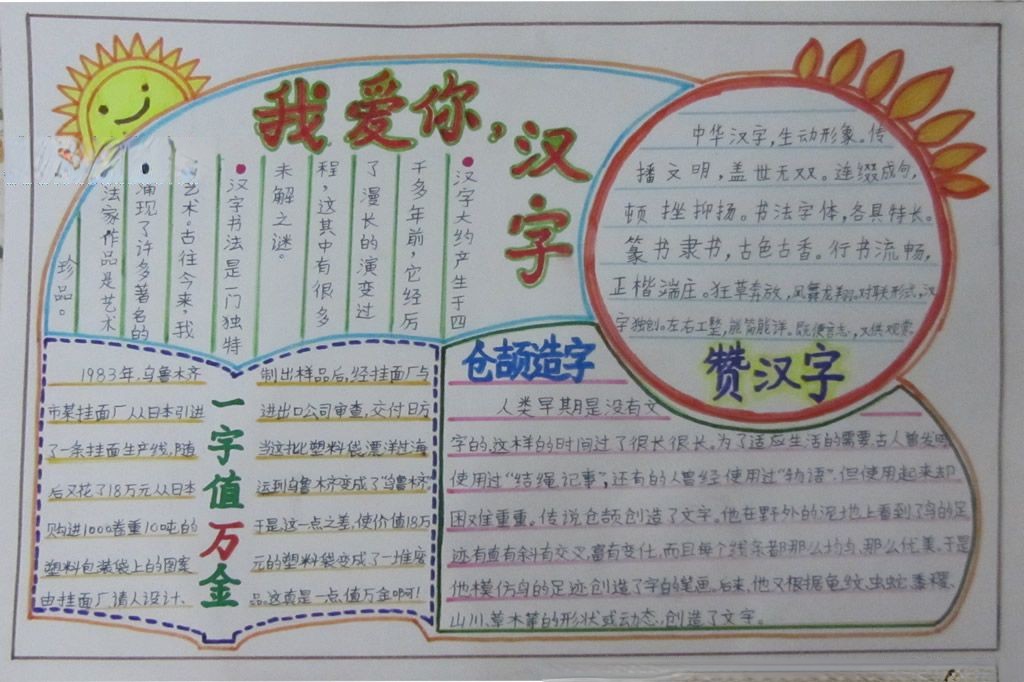 我爱你，汉字
汉字大约产生于四
千多年前，它经历
了漫长的演变过
程，这其中有很多
未解之谜。
汉字书法是一门独特
艺术。古往今来，我
涌现了许多著名的
法家作品是艺术
珍品。
中华汉字，生动形象。传
播文明，盖世无双。连缀成句，
顿挫抑扬。书法字体，各具特长。
篆书隶书，古色古香。行书流畅，
正楷端庄。狂草奔放，凤舞龙翔。对联形式，汉
字独创。左右工整，能简能详。既便言志，又供观赏
赞汉字
一字值万金
1983年，乌鲁木齐
市某挂面厂从日本引进
了一条挂面生产线，随
后又花了18万元从日本
购进1000卷重10吨的
塑料包装袋上的图案
由挂面厂请人设计、
制出样品后，经挂面厂与
进出口公司审查，交付日方
当这批塑料袋漂洋过海
运到乌鲁木齐变成了“乌鲁木齐
于是，这一点之差，使价值18万
元的塑料袋变成了一堆废
品。这真是一点值万金啊！
仓颉造字
人类早期是没有文
字的，这样的时间过了很长很长。为了适应生活的需要，古人曾发明
使用过“结绳记事”，还有的人曾经使用过“物语”。但使用起来却
困难重重。传说仓颉创造了文字。他在野外的泥地上看到了鸟的足
迹有直有斜有交叉，富有变化，而且每个线条都那么均匀，那么优美。于是
他模仿鸟的足迹创造了字的笔画。后来，他又根据龟纹、虫蛇、禾稷、
山川、草木等的形状或动态，创造了文字。